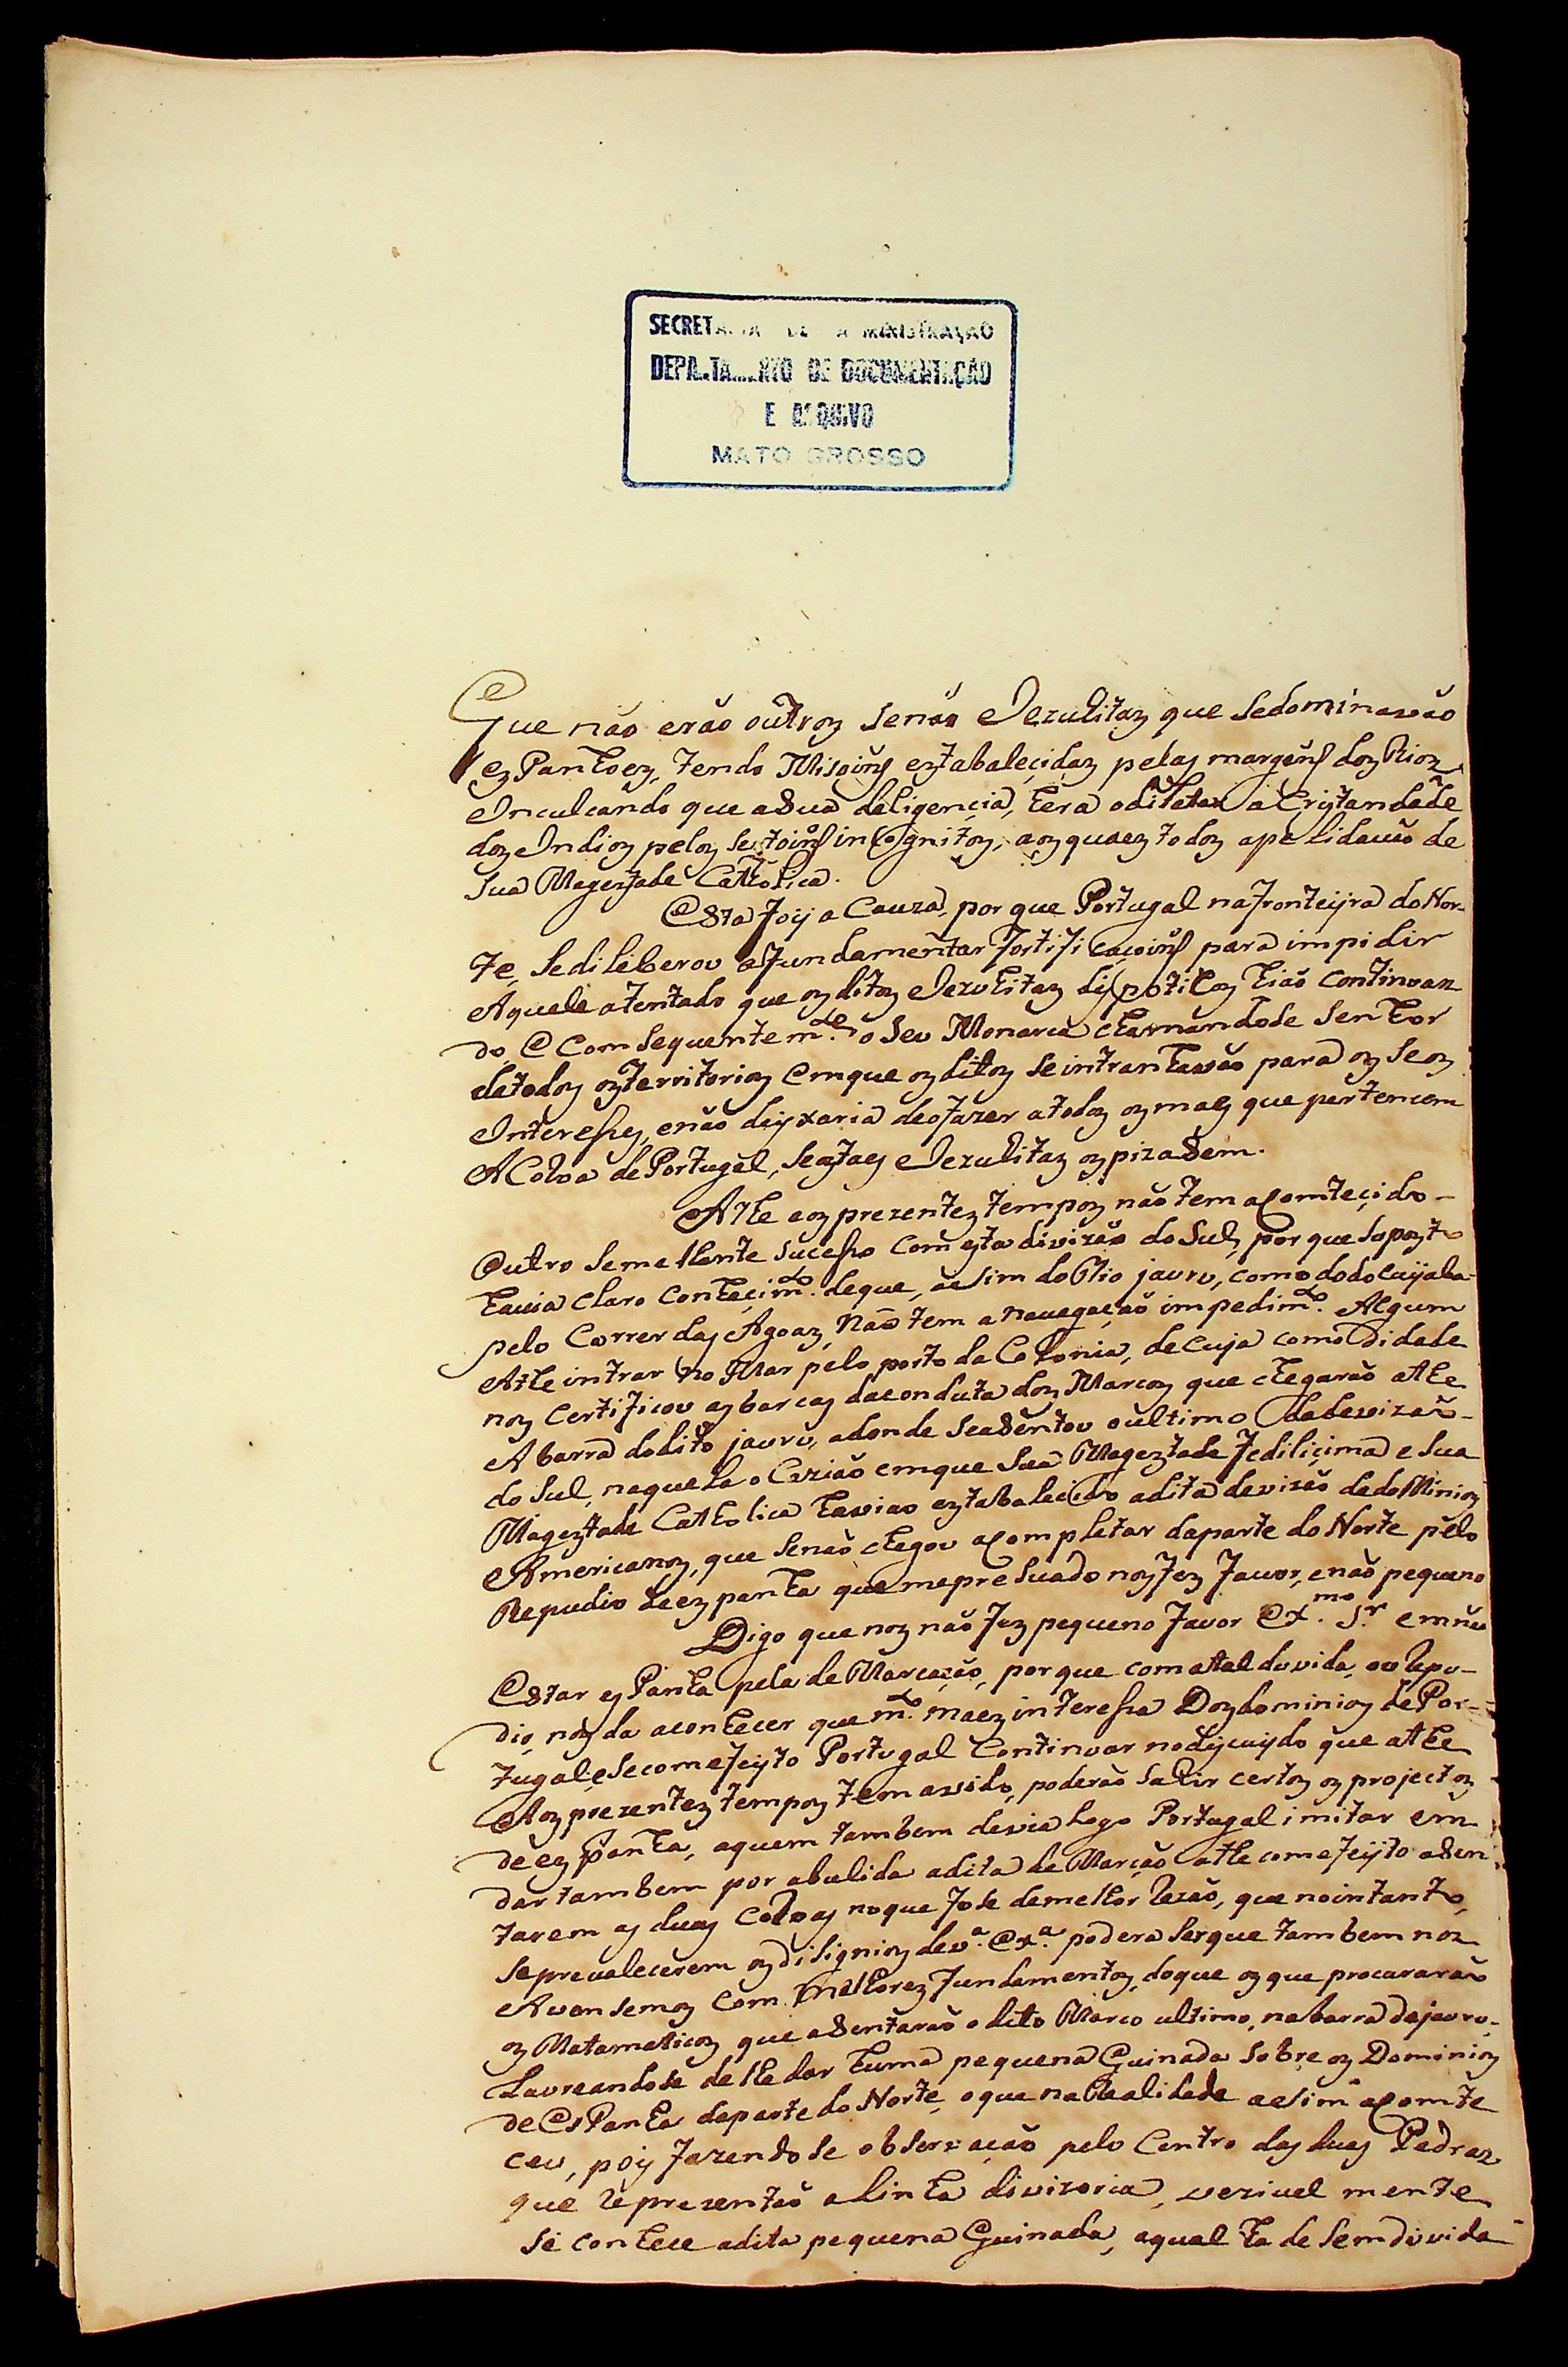 SECRETARIA DE ADMINISTRAÇÃO
DEPARTAMENTO DE DOCUMENTAÇÃO
E ARQUIVO
MATO GROSSO
Que não erão outroz senão Jezuhitaz que sedominavão
ezPanhoez, tendo Misoiñs eztabaleçidaz pelaz margeñs doz Rioz
Inculcando que a sua deligençia, hera o dilatar a Cristandade
doz Indioz peloz sertoiñs incognitoz, aoz quaez todoz apelidavão de
sua Mageztade Catholica.
Esta foy a Cauza, por que Portugal na fronteyra do Nor-
te, se diliberou a fundamentar fortificaçoiñs para impidir
Aquele atentado que oz ditoz Jezuhitaz dispoticoz hião continuan
do, E comsequentemte. o seu Monarca chamandose senhor
de todoz oz territorioz emque oz ditoz se intranhavão para oz seoz
Interesses, e não deyxaria de o fazer a todoz oz maez que pertencem
A Coroa de Portugal, se oz taez Jezuhitaz oz pizasem.
Athe aoz prezentez tempoz não tem acomteçido
Outro semelhante sucesso com esta divizão do Sul, por que supozto
havia claro conheçimto. de que, asim do Rio jauru, como do do cuyaba
pelo Correr daz Agoaz, Não tem a navegação impedimto. Algum
Athe intrar no Mar pelo porto da Colonia, de cuja comodidade
noz certificou az barcaz da conduta doz Marcoz que chegarão athe
A barra do dito jauru, adonde se asentou o ultimo da devizão
do Sul, naquela ocazião emque Sua Mageztade fediliçima e Sua
Mageztade Catholica havião eztabalecido a dita devizão de doMinioz
Americanoz, que senão chegou acompletar da parte do Norte pelo
Repudio de ezpanha que mapresuado noz fez favor, e não pequeno
Digo que noz não fez pequeno favor Exmo. Sr. em não
Estar ezPanha pela deMarcação, porque com a tal duvida, ou Repu-
dio, noz da aconhecer que mto. maez interessa Doz dominioz de Por-
tugal, e se com efeyto Portugal Continuar no dizcuydo que athe
Aoz prezentez tempoz tem avido, poderão sahir certoz oz projectoz
de ezpanha, aquem tambem devia logo Portugal imitar em
dar tambem por abulida a dita deMarcão athe com efeyto asen
tarem az duaz Coroaz no que fose de melhor Rezão, que no intanto,
se prevalecerem oz disignioz de va. Exa. podera ser que tambem noz
Avansemoz com melhorez fundamentoz, do que oz que procurarão
oz Matamaticoz que asentarão o dito Marco ultimo, na barra do jauru,
Laureandose de lhe dar huma pequena Guinada sobre oz Dominioz
de EsPanha da parte do Norte, o que na Realidade asim acomte
ceu, poiz fazendose observação pelo Centro daz duaz Pedraz
que reprezentão a linha divizoria, vezivelmente
se conhece a dita pequena Guinada, aqual ha de sem duvida